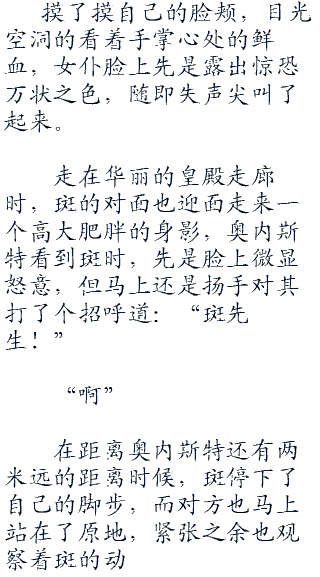 摸了摸自己的脸颊，目光
空洞的看着手掌心处的鲜
血，女仆脸上先是露出惊恐
万状之色，随即失声尖叫了
起来。
走在华丽的皇殿走廊
时，斑的对面也迎面走来一
个高大肥胖的身影，奥内斯
特看到斑时，先是脸上微显
怒意，但马上还是扬手对其
打了个招呼道：“斑先
生！”
“啊”
在距离奥内斯特还有两
米远的距离时候，斑停下了
自己的脚步，而对方也马上
站在了原地，紧张之余也观
察着斑的动